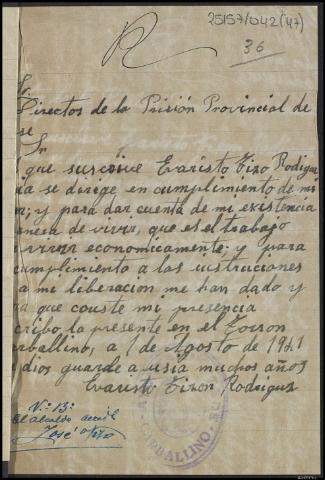 25157/042 (47)
R
36
Sr.
Director de la Prisión Provincial de
se
Sr
que suscrive Evaristo Tizon Rodigu
se dirige en cumplimiento de mi
r; y para dar cuenta de mi existencia
anera de vivir, que es el trabajo
vivir economicamente; y para
cumplimiento a las instruciones
a mi liberacion me han dado y
ra que conste mi presencia
cribo la presente en el Corron
arballino, a 1 de Agosto de 1941
dios guarde a usia muchos años
Evaristo Tizon Rodriguez
V.º B.º
El alcalde
José
BALLINO